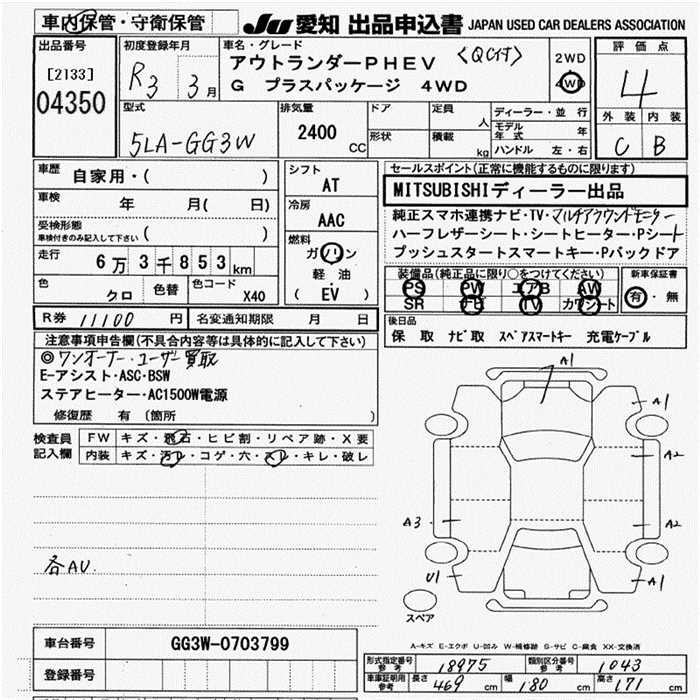 車内保管・守衛保管
JU 愛知 出品申込書 JAPAN USED CAR DEALERS ASSOCIATION
出品番号
[2133]
04350
初度登録年月
R3 3月
車名・グレード
アウトランダーPHEV <QC付>
G プラスパッケージ 4WD
2WD
4WD
評価点
4
外装 内装
C B
型式
5LA-GG3W
排気量
2400 CC
ドア
形状
定員 人
積載 kg
ディーラー・並行
モデル年式 年
ハンドル 左・右
車歴
自家用・( )
車検 年 月( 日)
受検形態
車検付きのみ記入して下さい ( )
走行 6万3千853km
色 クロ 色替
色コード X40
シフト
AT
冷房
AAC
燃料
ガソリン
軽油
( EV )
セールスポイント(正常に機能するものに限ります)
MITSUBISHIディーラー出品
純正スマホ連携ナビ・TV・マルチアラウンドモニター
ハーフレザーシート・シートヒーター・Pシート
プッシュスタートスマートキー・Pバックドア
装備品(純正品に限り○をつけてください)
PS PW エアB AW
SR ナビ TV カワシート
新車保証書
有・無
R券 11100 円
名変通知期限 月 日
後日品
保 取 ナビ取 スペアスマートキー 充電ケーブル
注意事項申告欄(不具合内容等は具体的に記入して下さい)
◎ワンオーナー・ユーザー買取
E-アシスト・ASC・BSW
ステアヒーター・AC1500W電源
修復歴 有 (箇所 )
検査員記入欄
FW キズ・飛石・ヒビ割・リペア跡・X要
内装 キズ・汚レ・コゲ・穴・スレ・キレ・破レ
各AU.
A1
A1
A2
A3
A2
U1
A1
スペア
A-キズ E-エクボ U-凹み W-補修跡 S-サビ C-腐食 XX-交換済
車台番号 GG3W-0703799
登録番号
形式指定番号 参考 18975
類別区分番号 参考 1043
車庫証明用 参考 長さ 469 cm 幅 180 cm 高さ 171 cm